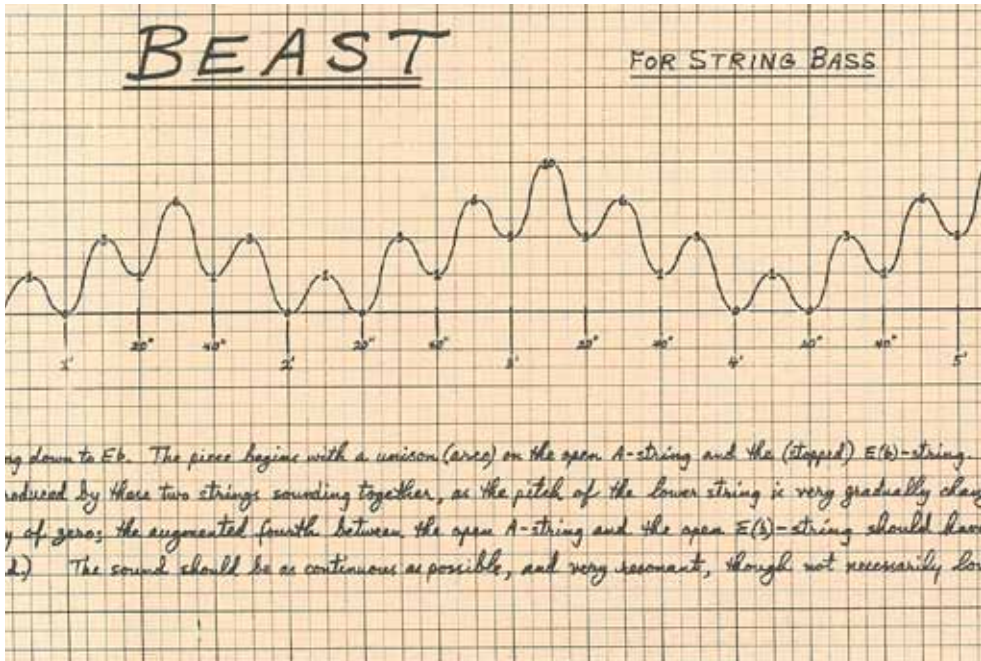 BEAST
FOR STRING BASS
10
20" 40" 20" 40" 20" 40" 20" 40"
1' 2' 3' 4' 5'
ng down to Eb. The piece begins with a unison (arco) on the open A-string and the (stopped) E(b)-string.
roduced by these two strings sounding together, as the pitch of the lower string is very gradually chan
y of zero; the augmented fourth between the open A-string and the open E(b)-string should hav
d.) The sound should be as continuous as possible, and very resonant, though not necessarily lou